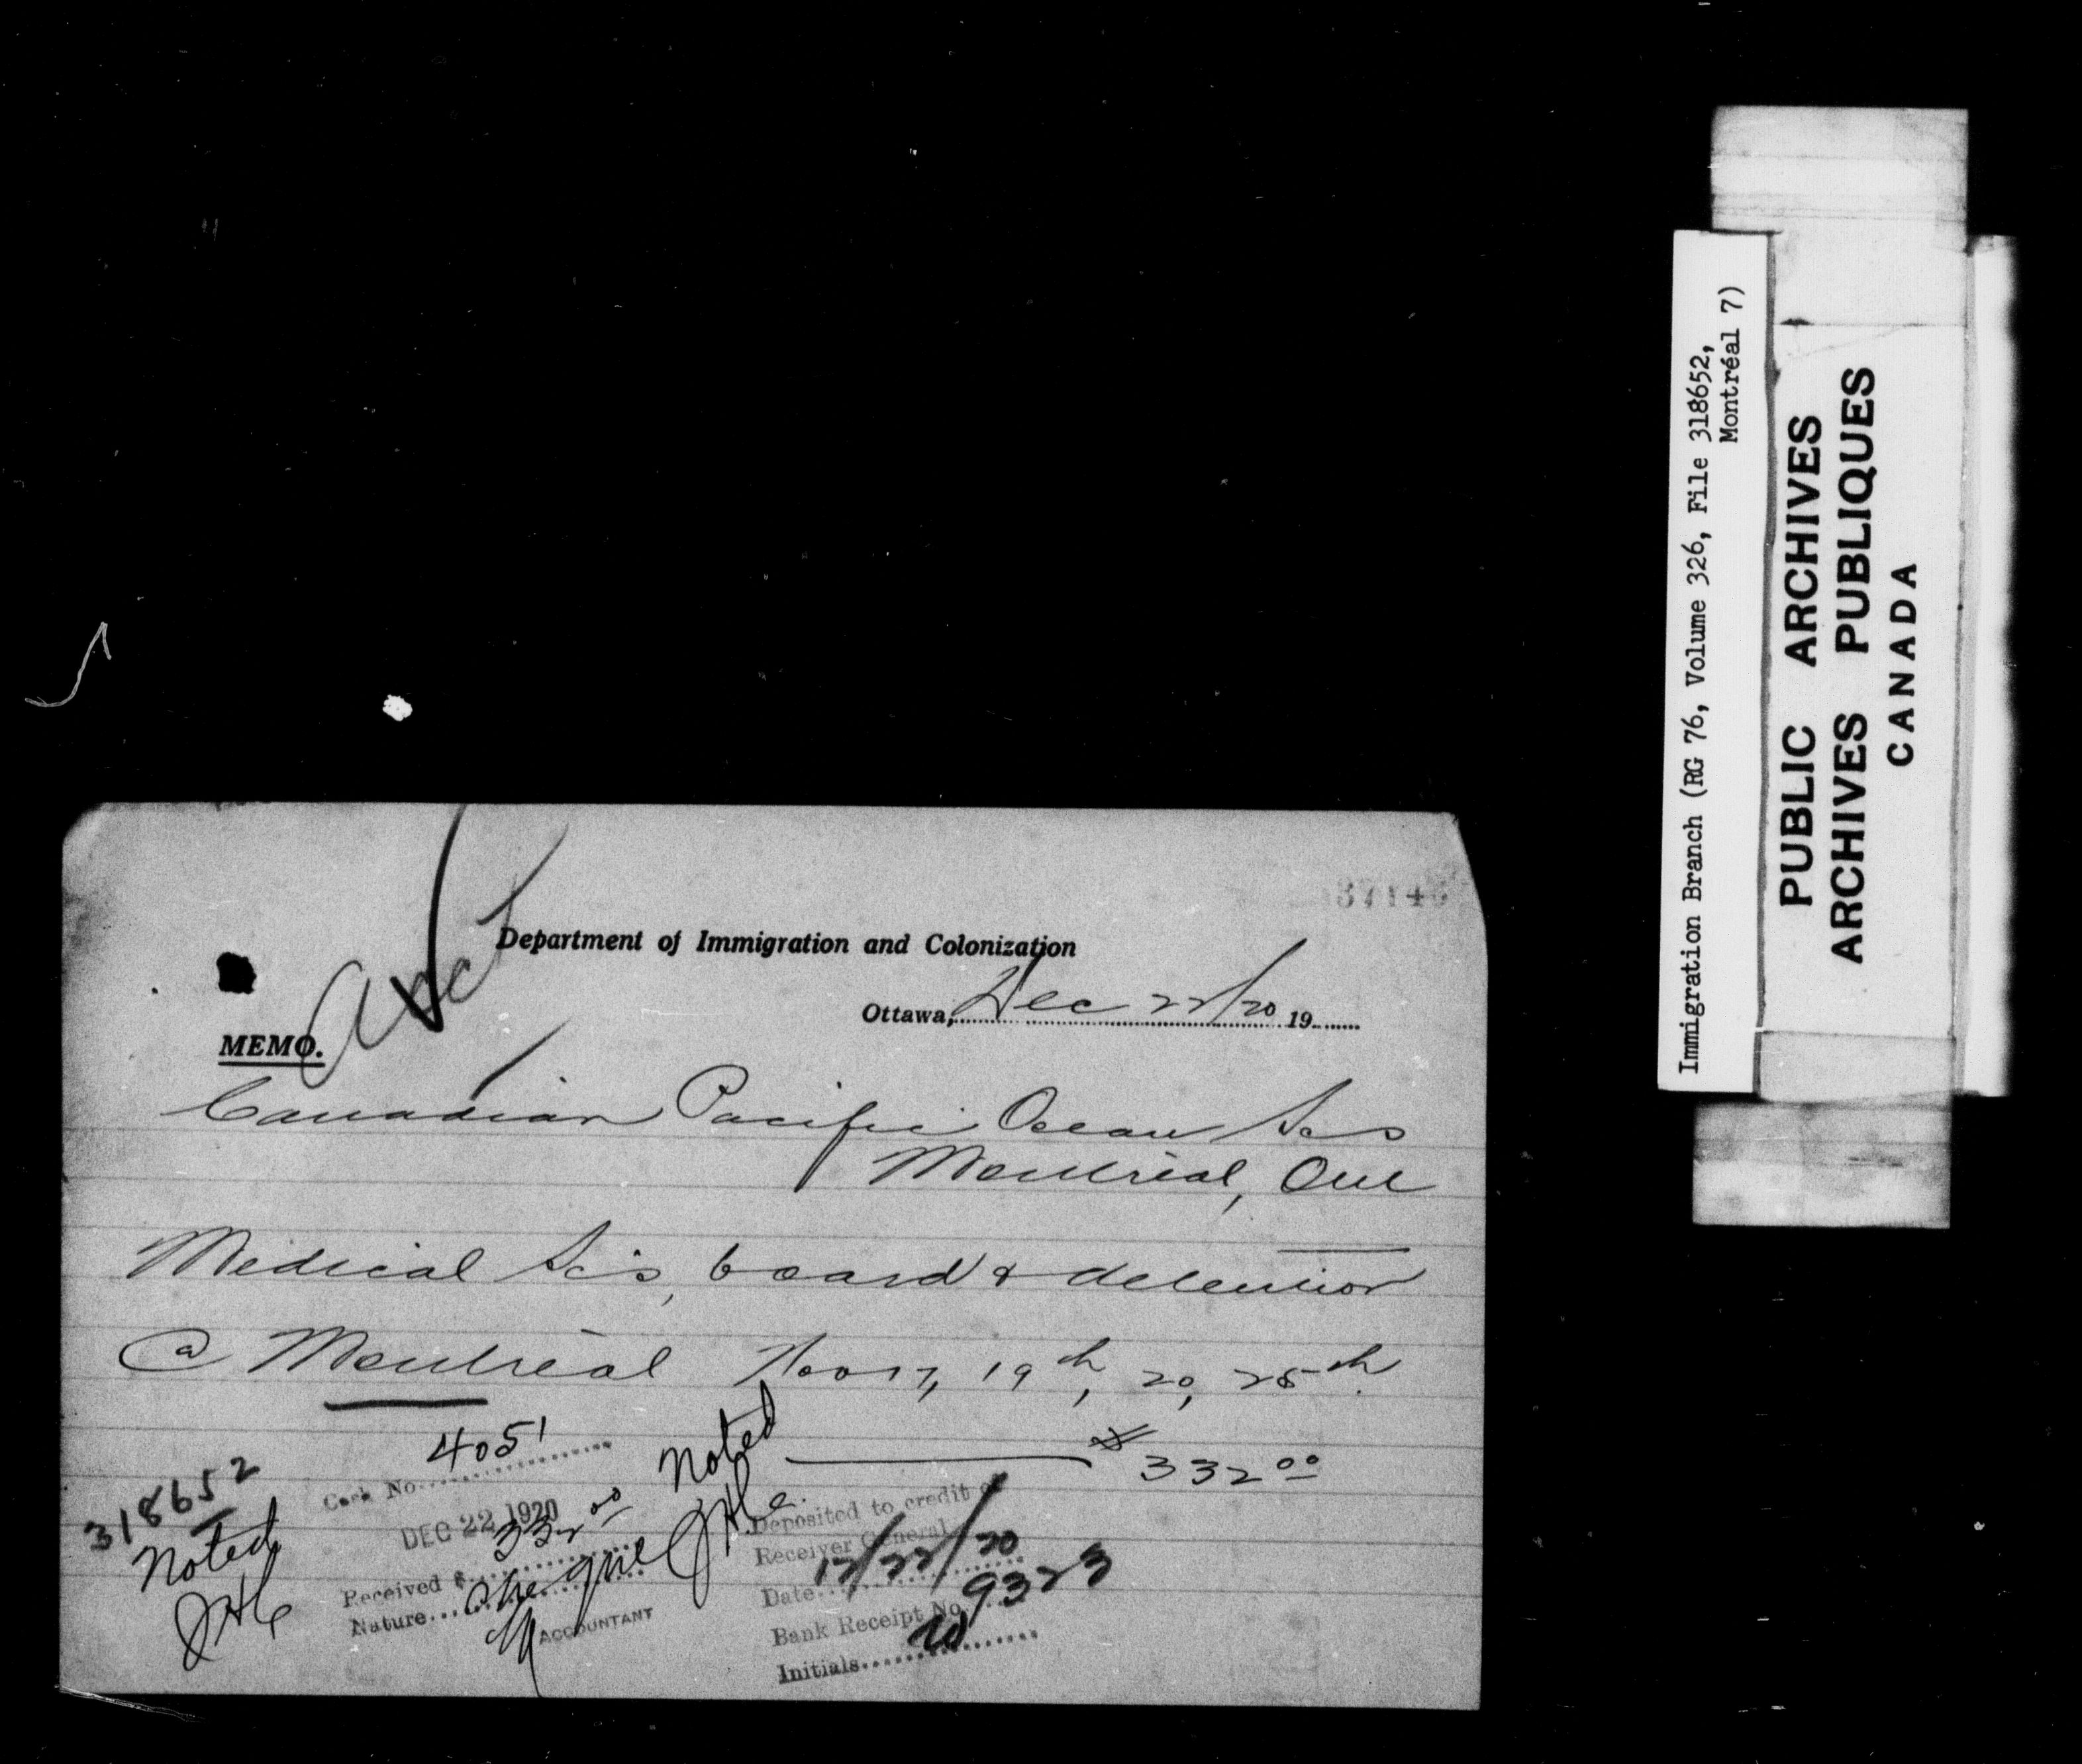 37145
Department of Immigration and Colonization
Acct
Ottawa, Dec 22/20 19
MEMO.
Canadian Pacific Ocean Scs
Montreal, Que
Medical Scs, board & detention
@ Montreal Nov 17, 19th, 20, 25th
$ 332 00
318652
Noted
Cash No. 4051
DEC 22 1920
Received $ 332 00
Nature Cheque
ACCOUNTANT
Noted
Deposited to credit of
Receiver General
Date 12/22/20
Bank Receipt No. 9323
Initials
Immigration Branch (RG 76, Volume 326, File 318652,
Montréal 7)
PUBLIC ARCHIVES
ARCHIVES PUBLIQUES
CANADA